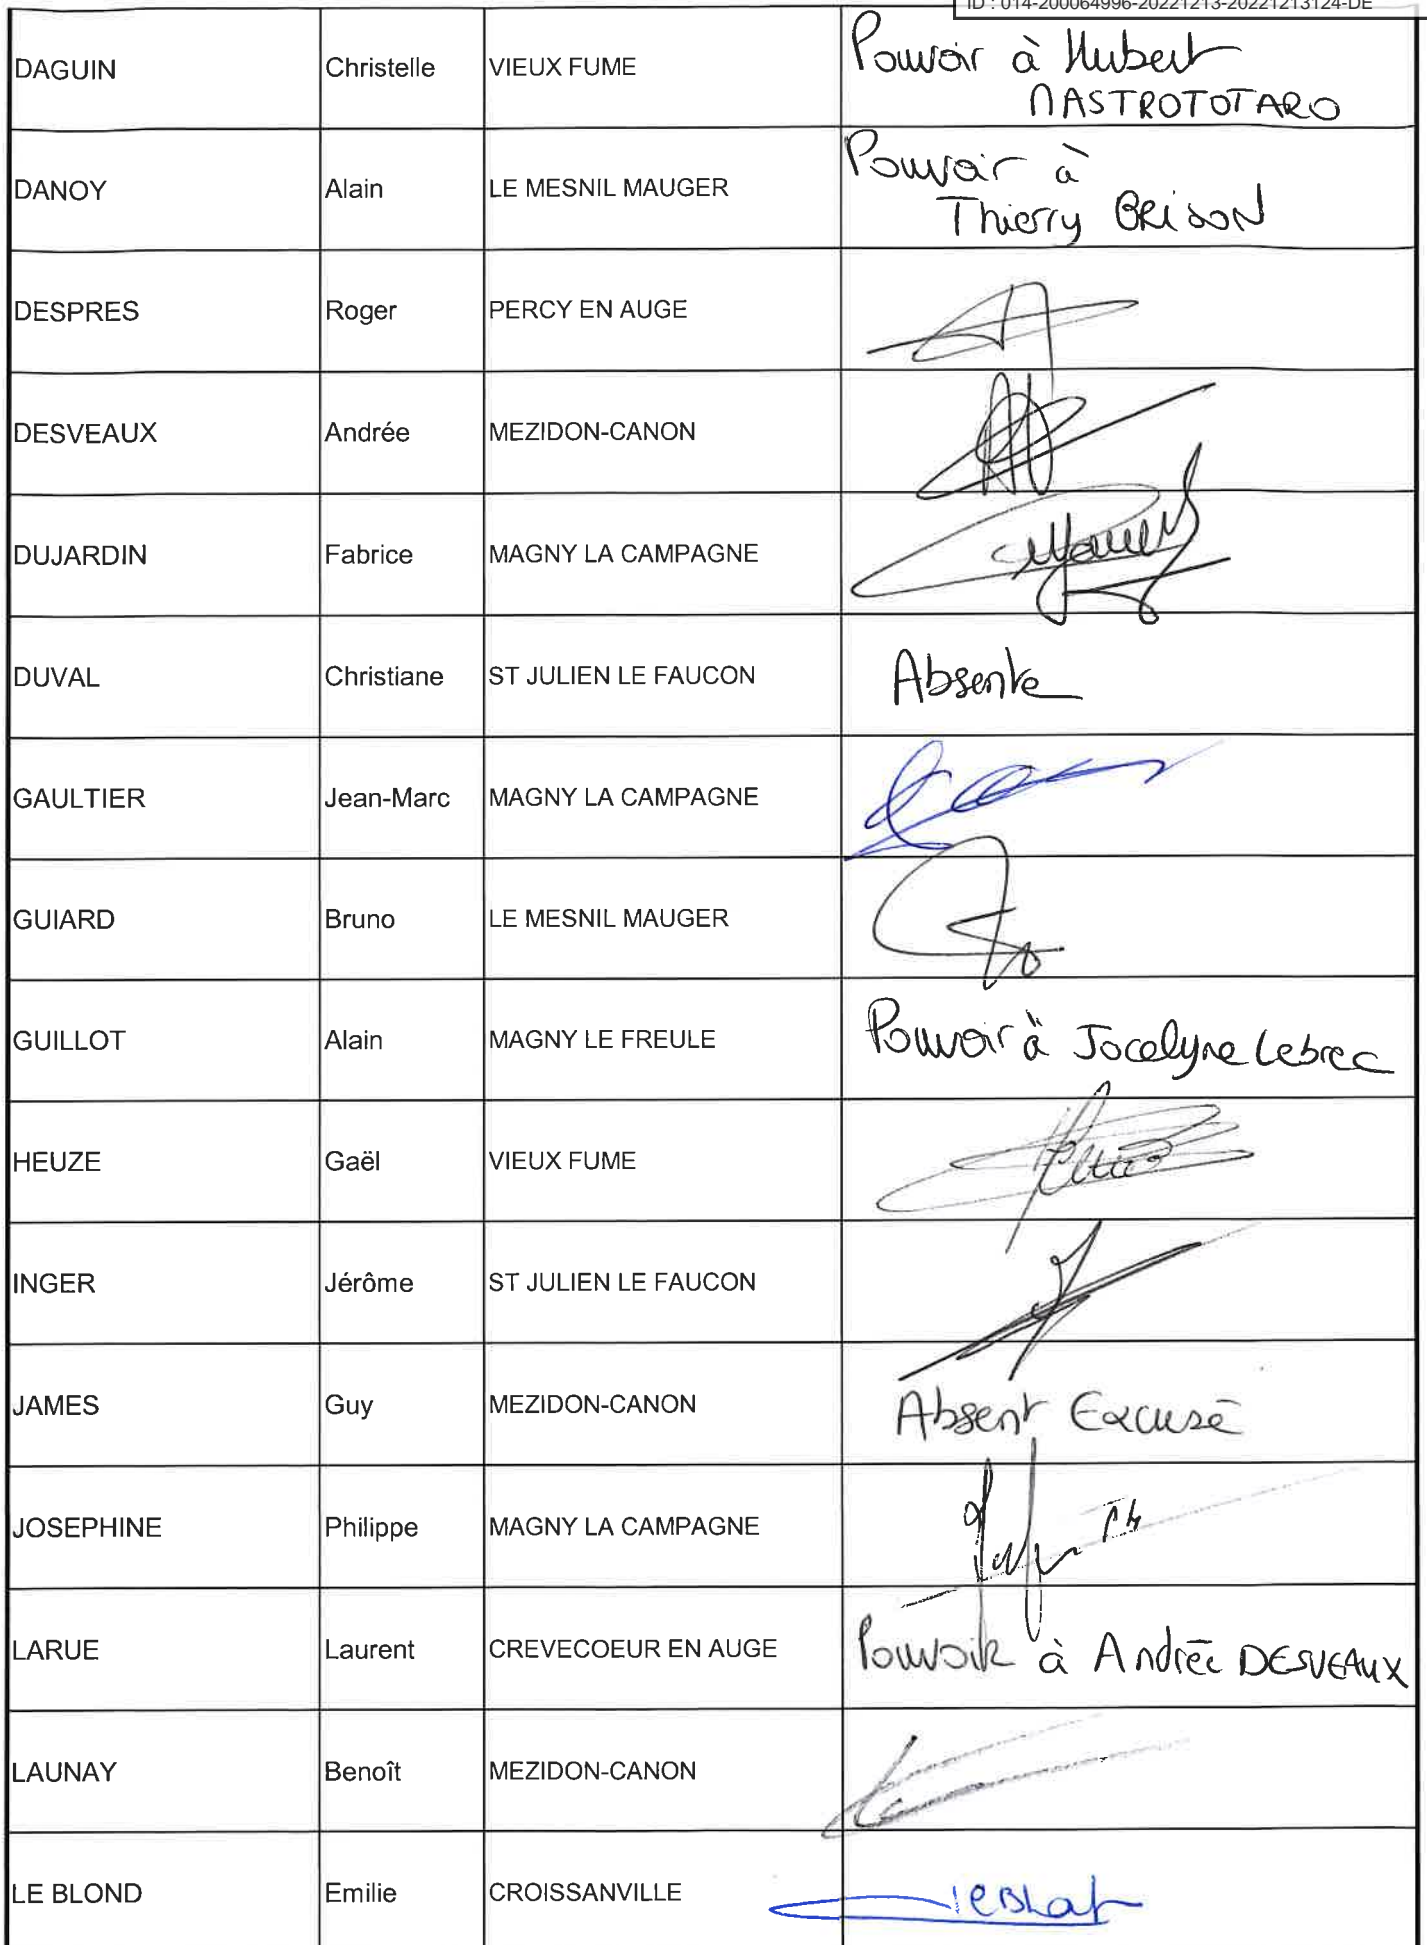 ID : 014-200064996-20221213-20221213124-DE
DAGUIN Christelle VIEUX FUME Pouvoir à Hubert
MASTROTOTARO
DANOY Alain LE MESNIL MAUGER Pouvoir à
Thierry BRISON
DESPRES Roger PERCY EN AUGE
DESVEAUX Andrée MEZIDON-CANON
DUJARDIN Fabrice MAGNY LA CAMPAGNE
DUVAL Christiane ST JULIEN LE FAUCON Absente
GAULTIER Jean-Marc MAGNY LA CAMPAGNE
GUIARD Bruno LE MESNIL MAUGER
GUILLOT Alain MAGNY LE FREULE Pouvoir à Jocelyne Lebrec
HEUZE Gaël VIEUX FUME
INGER Jérôme ST JULIEN LE FAUCON
JAMES Guy MEZIDON-CANON Absent Excusé
JOSEPHINE Philippe MAGNY LA CAMPAGNE
LARUE Laurent CREVECOEUR EN AUGE Pouvoir à Andrée DESVEAUX
LAUNAY Benoît MEZIDON-CANON
LE BLOND Emilie CROISSANVILLE